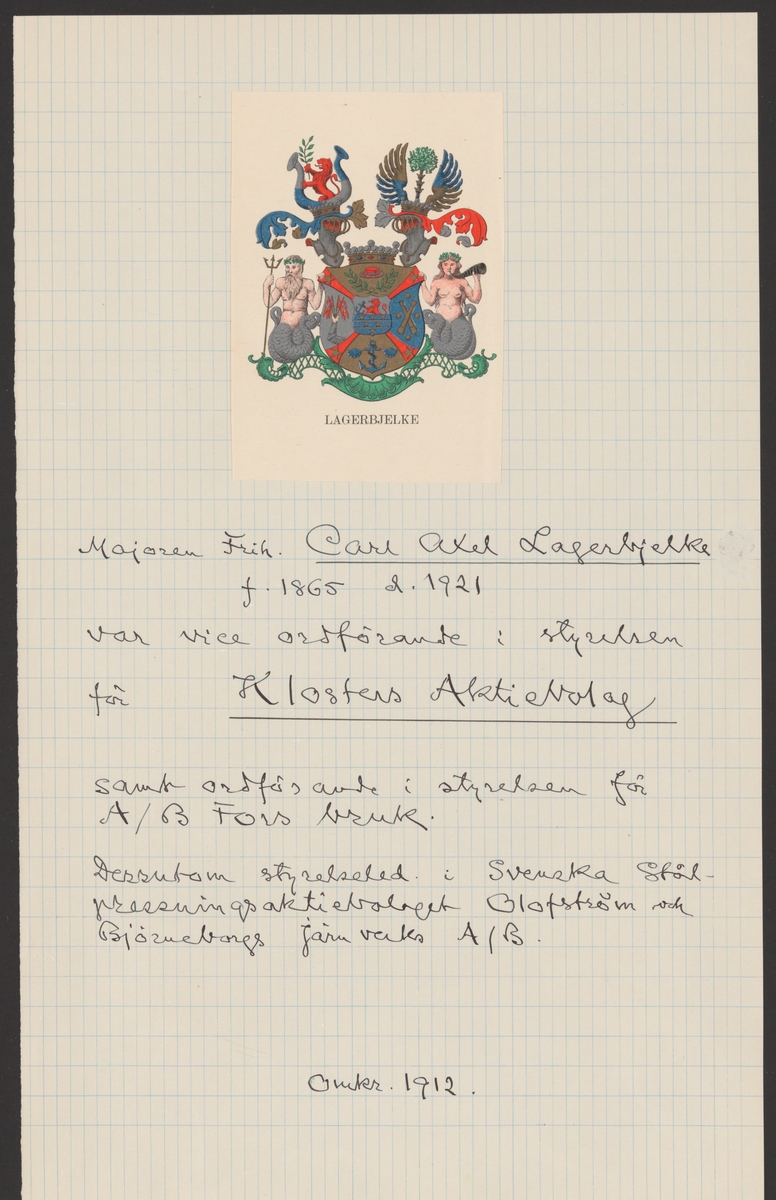 LAGERBJELKE
Majoren Frih. Carl Axel Lagerbjelke
f. 1865 d. 1921
var vice ordförande i styrelsen
för Klosters Aktiebolag
samt ordförande i styrelsen för
A/B Fors bruk.
Dessutom styrelseled. i Svenska Stål-
pressningsaktiebolaget Olofström och
Björneborgs järnverks A/B.
Omkr. 1912.